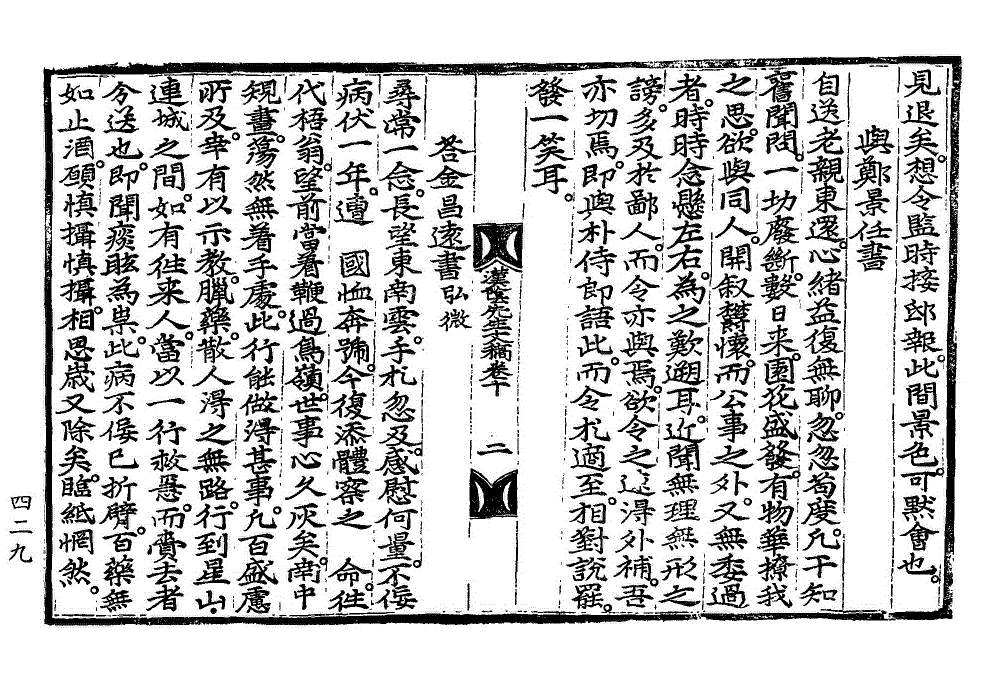 見退矣。想令監時接邸報。此間景色。可默會也。
與鄭景任書
自送老親東還。心緒益復無聊。忽忽苟度。凡干知
舊聞問。一切廢斷。數日來。園花盛發。有物華撩我
之思。欲與同人。開叙鬱懷。而公事之外。又無委過
者。時時念懸左右。為之歎遡耳。近聞無理無形之
謗。多及於鄙人。而令亦與焉。欲令之遠得外補。吾
亦切焉。即與朴侍郎語此。而令札適至。相對說罷。
發一笑耳。
先生文稿卷十
二
答金昌遠書 弘微
尋常一念。長望東南雲。手札忽及。感慰何量。不佞
病伏一年。遭 國恤奔號。今復添體察之 命。往
代梧翁。望前當着鞭過鳥嶺。世事心久灰矣。南中
規畫。蕩然無着手處。此行能做得甚事。凡百盛慮
所及。幸有以示教。臘藥。散人得之無路。行到星山
連城之間。如有往来人。當以一行救急。而賫去者
分送也。即聞痰眩為祟。此病不佞已折臂。百藥無
如止酒。願慎攝慎攝。相思歲又除矣。臨紙惘然。
四二九